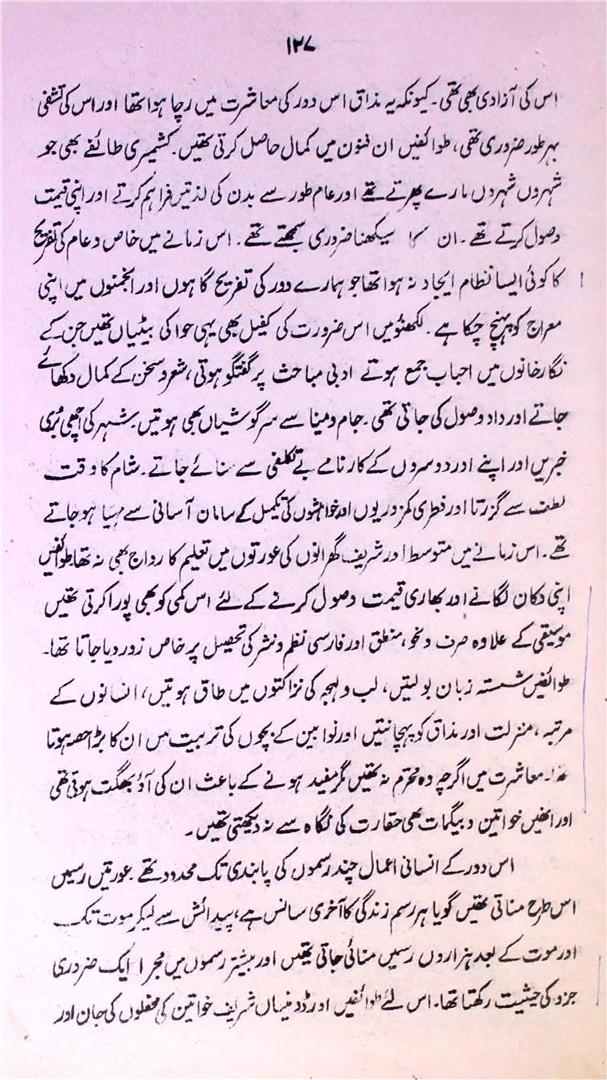 ۱۲۷
اس کی آزادی بھی تھی۔ کیونکہ یہ مذاق اس دور کی معاشرت میں رچا ہوا تھا اور اس کی تشفی
بہر طور ضروری تھی، طوائفیں ان فنون میں کمال حاصل کرتی تھیں۔ کشمیری طائفے بھی جو
شہروں شہروں مارے پھرتے تھے اور عام طور سے بدن کی لذتیں فراہم کرتے اور اپنی قیمت
وصول کرتے تھے۔ ان کا سیکھنا ضروری سمجھتے تھے۔ اس زمانے میں خاص و عام کی تفریح
کا کوئی ایسا نظام ایجاد نہ ہوا تھا جو ہمارے دور کی تفریح گاہوں اور انجمنوں میں اپنی
معراج کو پہنچ چکا ہے۔ لکھنؤ میں اس ضرورت کی کفیل بھی یہی حوا کی بیٹیاں تھیں جن کے
نگار خانوں میں احباب جمع ہوتے ادبی مباحث پر گفتگو ہوتی، شعر و سخن کے کمال دکھائے
جاتے اور داد وصول کی جاتی تھی۔ جام و مینا سے سرگوشیاں بھی ہوتیں۔ شہر کی اچھی بُری
خبریں اور اپنے اور دوسروں کے کارنامے بے تکلفی سے سنائے جاتے۔ شام کا وقت
لطف سے گزرتا اور فطری کمزوریوں اور خواہشوں کی تکمیل کے سامان آسانی سے مہیا ہو جاتے
تھے۔ اس زمانے میں متوسط اور شریف گھرانوں کی عورتوں میں تعلیم کا رواج بھی نہ تھا طوائفیں
اپنی دکان لگانے اور بھاری قیمت وصول کرنے کے لئے اس کمی کو بھی پورا کرتی تھیں
موسیقی کے علاوہ صرف و نحو، منطق اور فارسی نظم و نثر کی تحصیل پر خاص زور دیا جاتا تھا۔
طوائفیں شستہ زبان بولتیں، لب و لہجہ کی نزاکتوں میں طاق ہوتیں، انسانوں کے
مرتبہ، منزلت اور مذاق کو پہچانتیں اور نوابین کے بچوں کی تربیت میں ان کا بڑا حصہ ہوتا
تھا۔ معاشرت میں اگرچہ وہ محترم نہ تھیں مگر مفید ہونے کے باعث ان کی آؤ بھگت ہوتی تھی
اور انھیں خواتین و بیگمات بھی حقارت کی نگاہ سے نہ دیکھتی تھیں۔
اس دور کے انسانی اعمال چند رسموں کی پابندی تک محدود تھے عورتیں رسمیں
اس طرح مناتی تھیں گویا ہر رسم زندگی کا آخری سانس ہے، پیدائش سے لیکر موت تک
اور موت کے بعد ہزاروں رسمیں منائی جاتی تھیں اور بیشتر رسموں میں مجرا ایک ضروری
جزو کی حیثیت رکھتا تھا۔ اس لئے طوائفیں اور ڈومنیاں شریف خواتین کی محفلوں کی جان اور